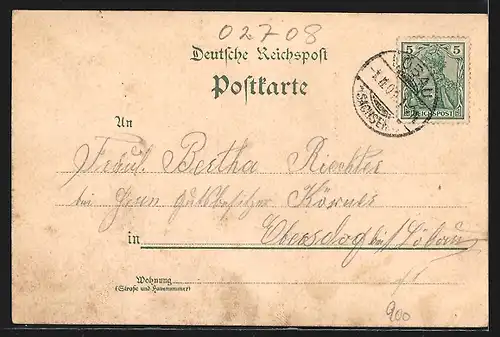 02708
Deutsche Reichspost
Postkarte
5 5
REICHSPOST
LÖBAU
SACHSEN
An
Fräul. Bertha Riechter
bei Herrn Gutsbesitzer Körner
in Ebersdorf bei Löbau
Wohnung
(Straße und Hausnummer)
900